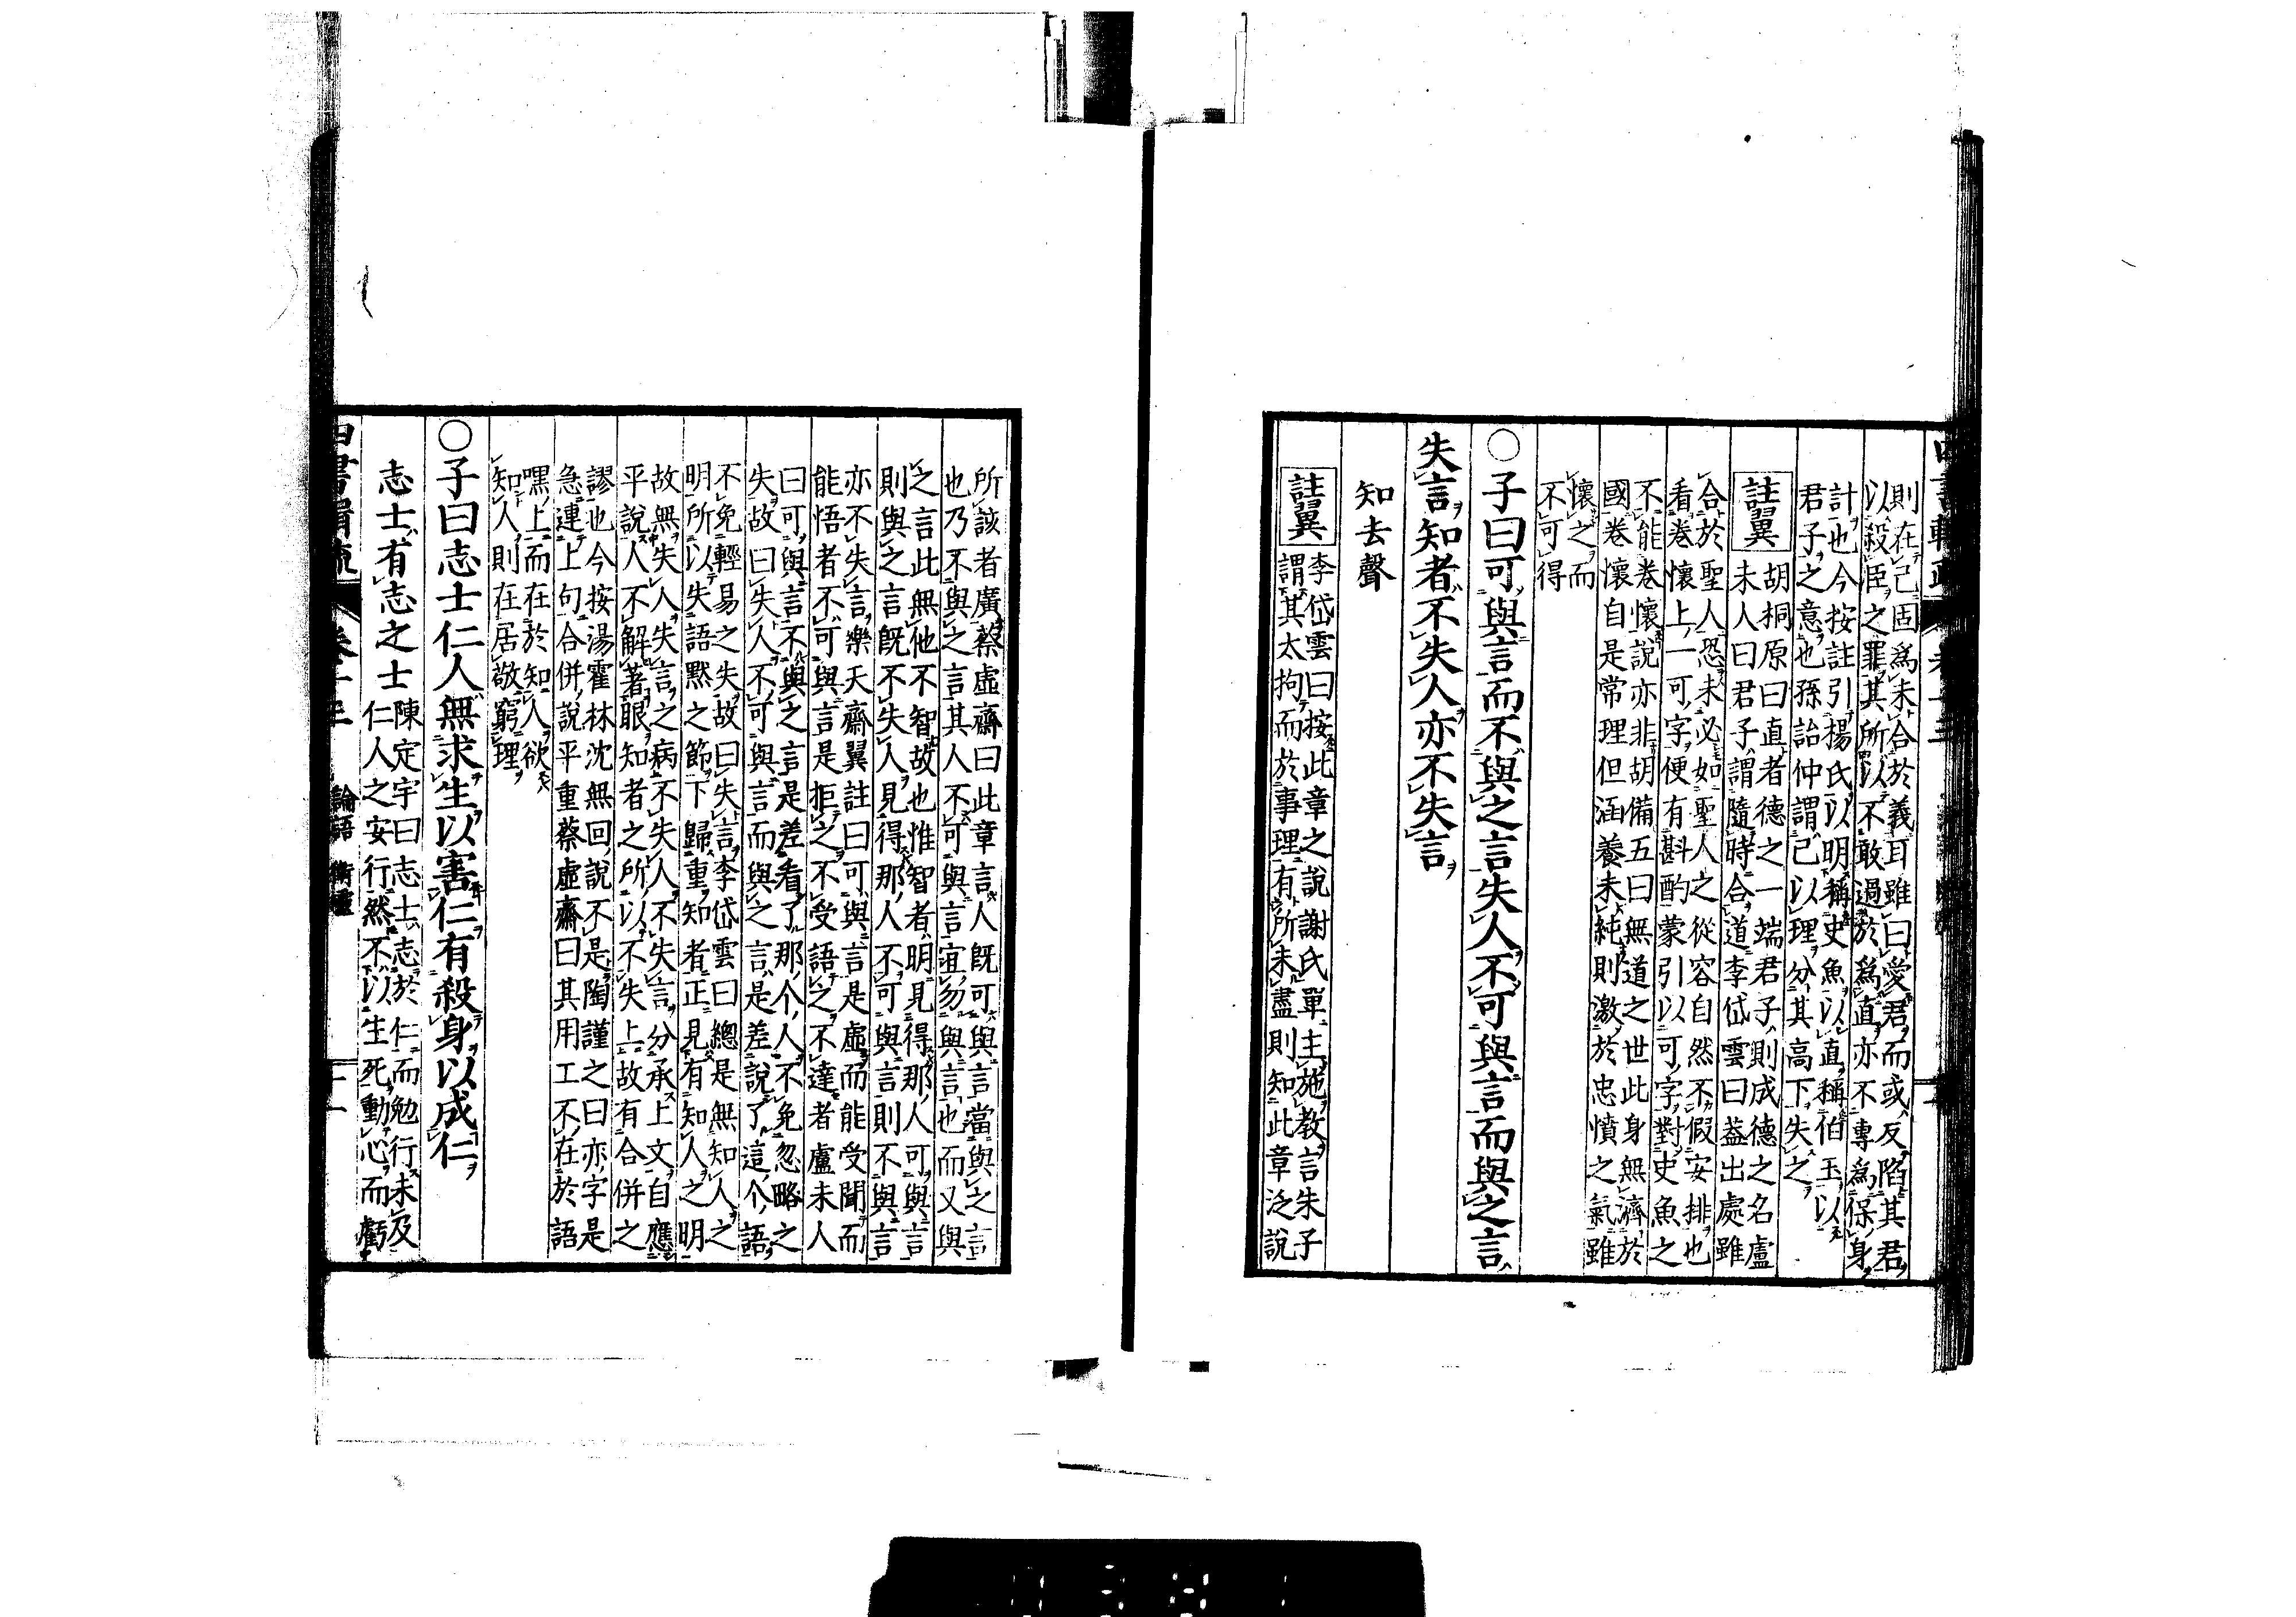 則在己固爲未合於義耳雖曰愛君而或反陷其君
以殺臣之罪其所以不敢過於爲直亦不專爲保身
計也今按註引楊氏以明稱史魚以直稱伯玉以
君子之意也孫詒仲謂己以理分其高下失之
註翼
胡桐原曰直者德之一端君子則成德之名盧
未人曰君子謂隨時合道李岱雲曰益出處雖
合於聖人恐未必如聖人之從容自然不假安排也
看卷懷上一可字便有斟酌蒙引以可字對史魚之
不能卷懷說亦非胡備五曰無道之世此身無濟於
國卷懷自是常理但涵養未純則激於忠憤之氣雖
懷之而
不可得
○子曰可與言而不與之言失人不可與言而與之言
失言知者不失人亦不失言
知去聲
註翼
李岱雲曰按此章之說謝氏單主施教言朱子
謂其太拘而於事理有所未盡則知此章泛說
所該者廣蔡虛齋曰此章言人既可與言當與之言
也乃不與之言其人不可與言宜勿與言也而又與
之言此無他不智故也惟智者明見得那人可與言
則與之言既不失人見得那人不可與言則不與言
亦不失言樂天齋翼註曰可與言是虛而能受聞而
能悟者不可與言是拒之不受語之不達者盧未人
曰可與言不與之言是差看了那个人不免忽略之
失故曰失人不可與言而與之言是差說了這个語
不免輕易之失故曰失言李岱雲曰總是無知人之
明所以失語默之節下歸重知者正見有知人之明
故無失人失言之病不失人不失言分承上文自應
平說人不解著眼知者之所以不失上故有合併之
謬也今按湯霍林沈無回說不是陶謹之曰亦字是
急連上句合併說平重蔡虛齋曰其用工不在於語
嘿上而在於知人欲
知人則在居敬窮理
○子曰志士仁人無求生以害仁有殺身以成仁
志士有志之士
陳定宇曰志士志於仁而勉行未及
仁人之安行然不以生死動心而虧
論語 衛靈